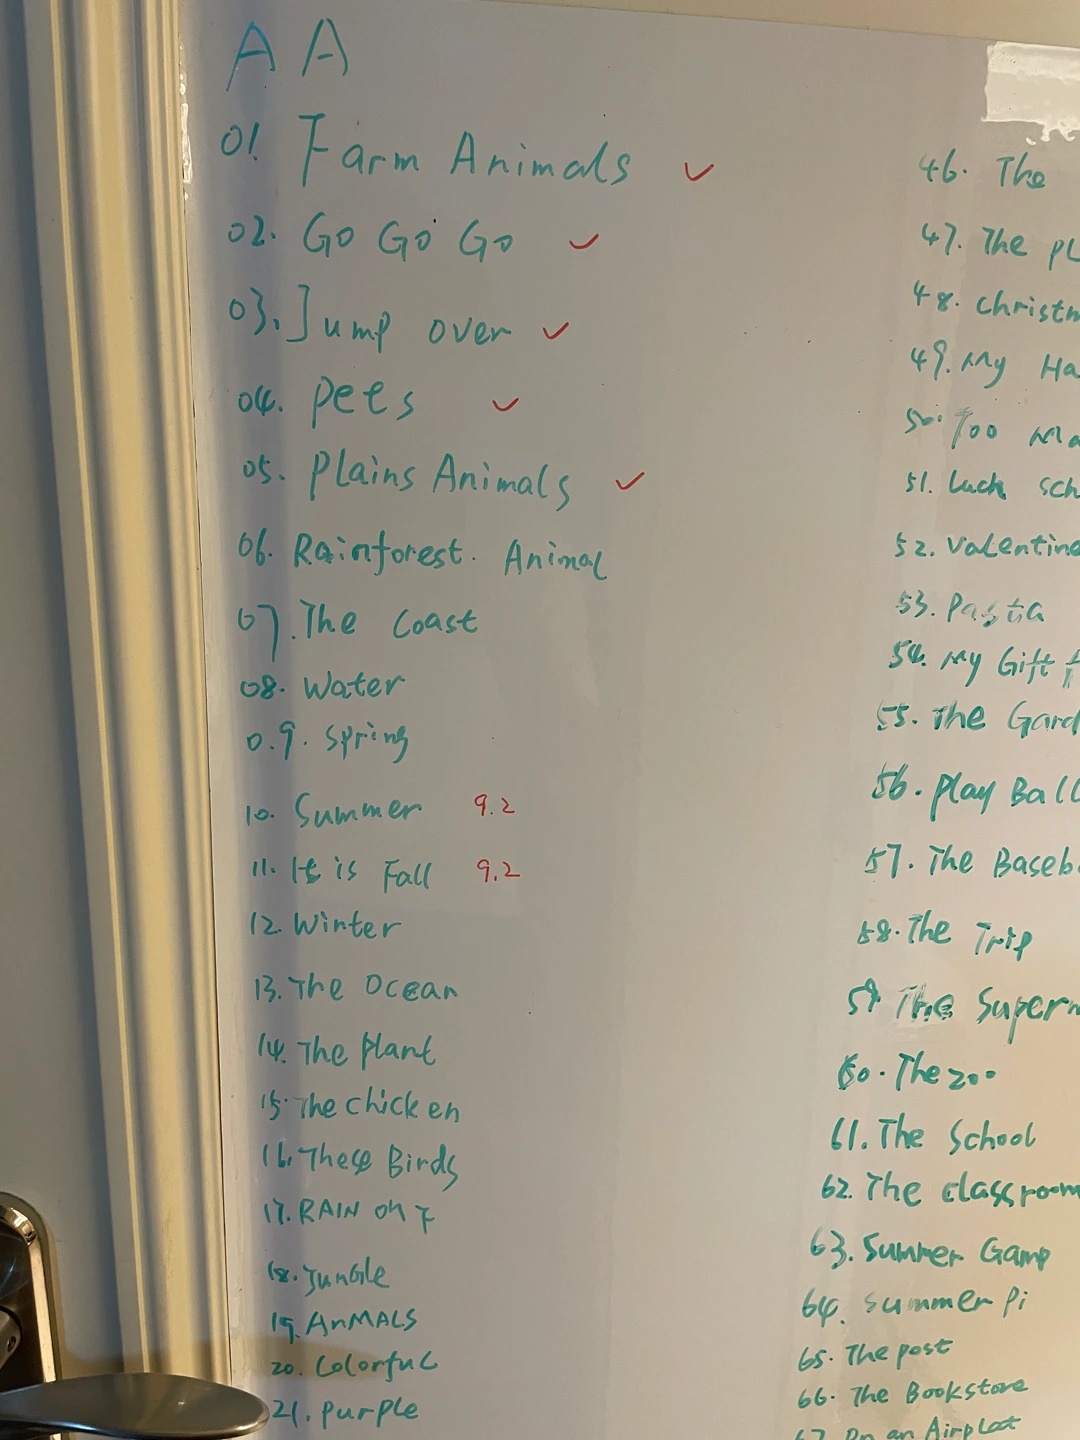 A A
01. Farm Animals ✓
02. Go Go Go ✓
03. Jump over ✓
04. pets ✓
05. Plains Animals ✓
06. Rainforest. Animal
07. The Coast
08. Water
0.9. Spring
10. Summer 9.2
11. It is Fall 9.2
12. Winter
13. The Ocean
14. The plant
15. The chicken
16. These Birds
17. RAIN on F
18. JunGle
19. AnMALS
20. Colorful
21. purple
46. The
47. The pl
48. Christm
49. My Ha
50. Too Ma
51. Luck Sch
52. Valentine
53. Pasta
54. My Gift f
55. The Gard
56. Play Ball
57. The Baseb
58. The Trip
59. The Superm
60. The zoo
61. The School
62. The classroom
63. Summer Gamp
64. Summer Pi
65. The post
66. The Bookstore
67. On an Airplat